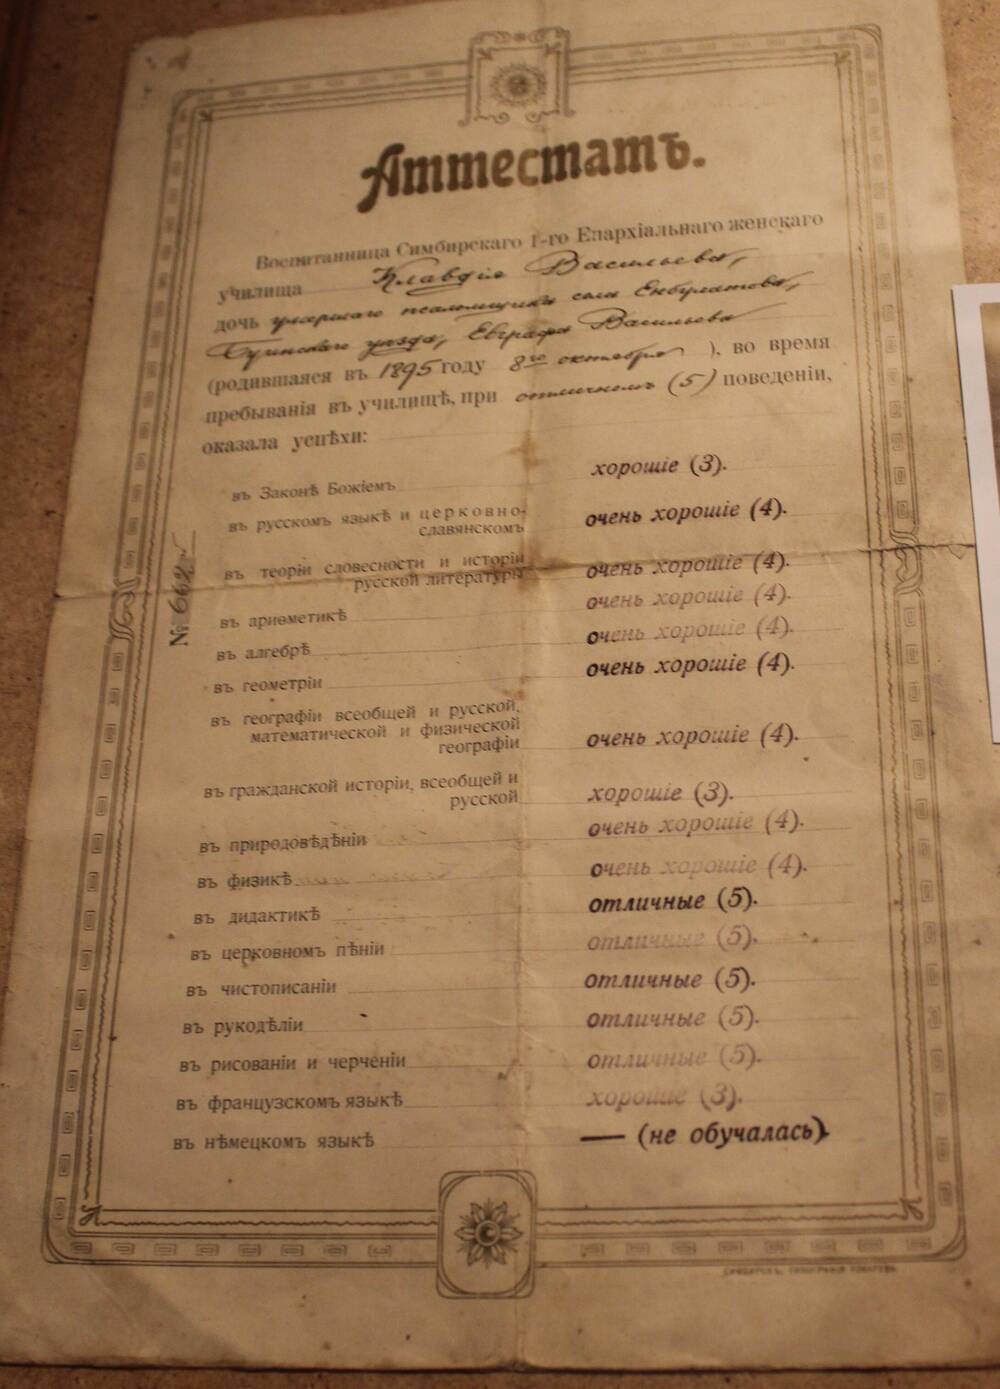 Аттестатъ.
Воспитанница Симбирскаго 1-го Епархіальнаго женскаго
училища Клавдія Васильева,
дочь умершаго псаломщика села Енбулатова,
Буинскаго уѣзда, Евграфа Васильева
(родившаяся въ 1895 году 8го октября), во время
пребыванія въ училищѣ, при отличномъ (5) поведеніи,
оказала успѣхи:
въ Законѣ Божіемъ хорошіе (3).
въ русскомъ языкѣ и церковно-
славянскомъ очень хорошіе (4).
въ теоріи словесности и исторіи
русской литературы очень хорошіе (4).
въ ариѳметикѣ очень хорошіе (4).
въ алгебрѣ очень хорошіе (4).
въ геометріи очень хорошіе (4).
въ географіи всеобщей и русской,
математической и физической
географіи очень хорошіе (4).
въ гражданской исторіи, всеобщей и
русской хорошіе (3).
въ природовѣдѣніи очень хорошіе (4).
въ физикѣ очень хорошіе (4).
въ дидактикѣ отличные (5).
въ церковномъ пѣніи отличные (5).
въ чистописаніи отличные (5).
въ рукодѣліи отличные (5).
въ рисованіи и черченіи отличные (5).
въ французскомъ языкѣ хорошіе (3).
въ нѣмецкомъ языкѣ — (не обучалась).
№ 662